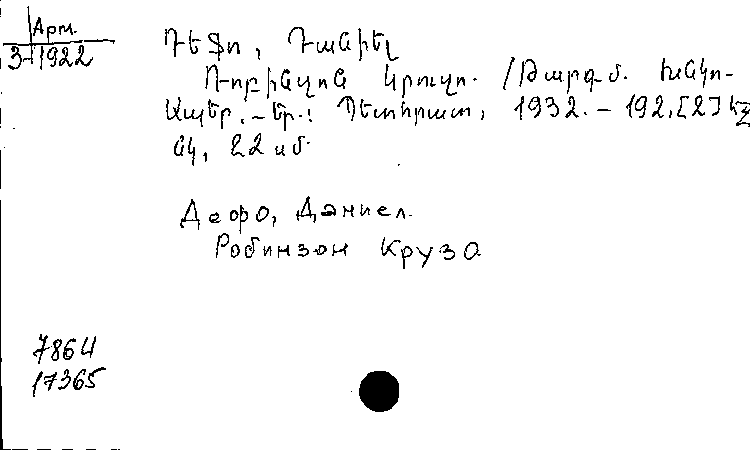 Арм.
3-1922
Դեֆո, Դանիել
Ռոբինզոն Կրուզո. /Թարգմ. Խնկո-
Ապեր. – Եր.: Պետհրատ, 1932. – 192, [2] էջ
նկ, 22 սմ.
Дефо, Даниел.
Робинзон Крузо
7864
17365